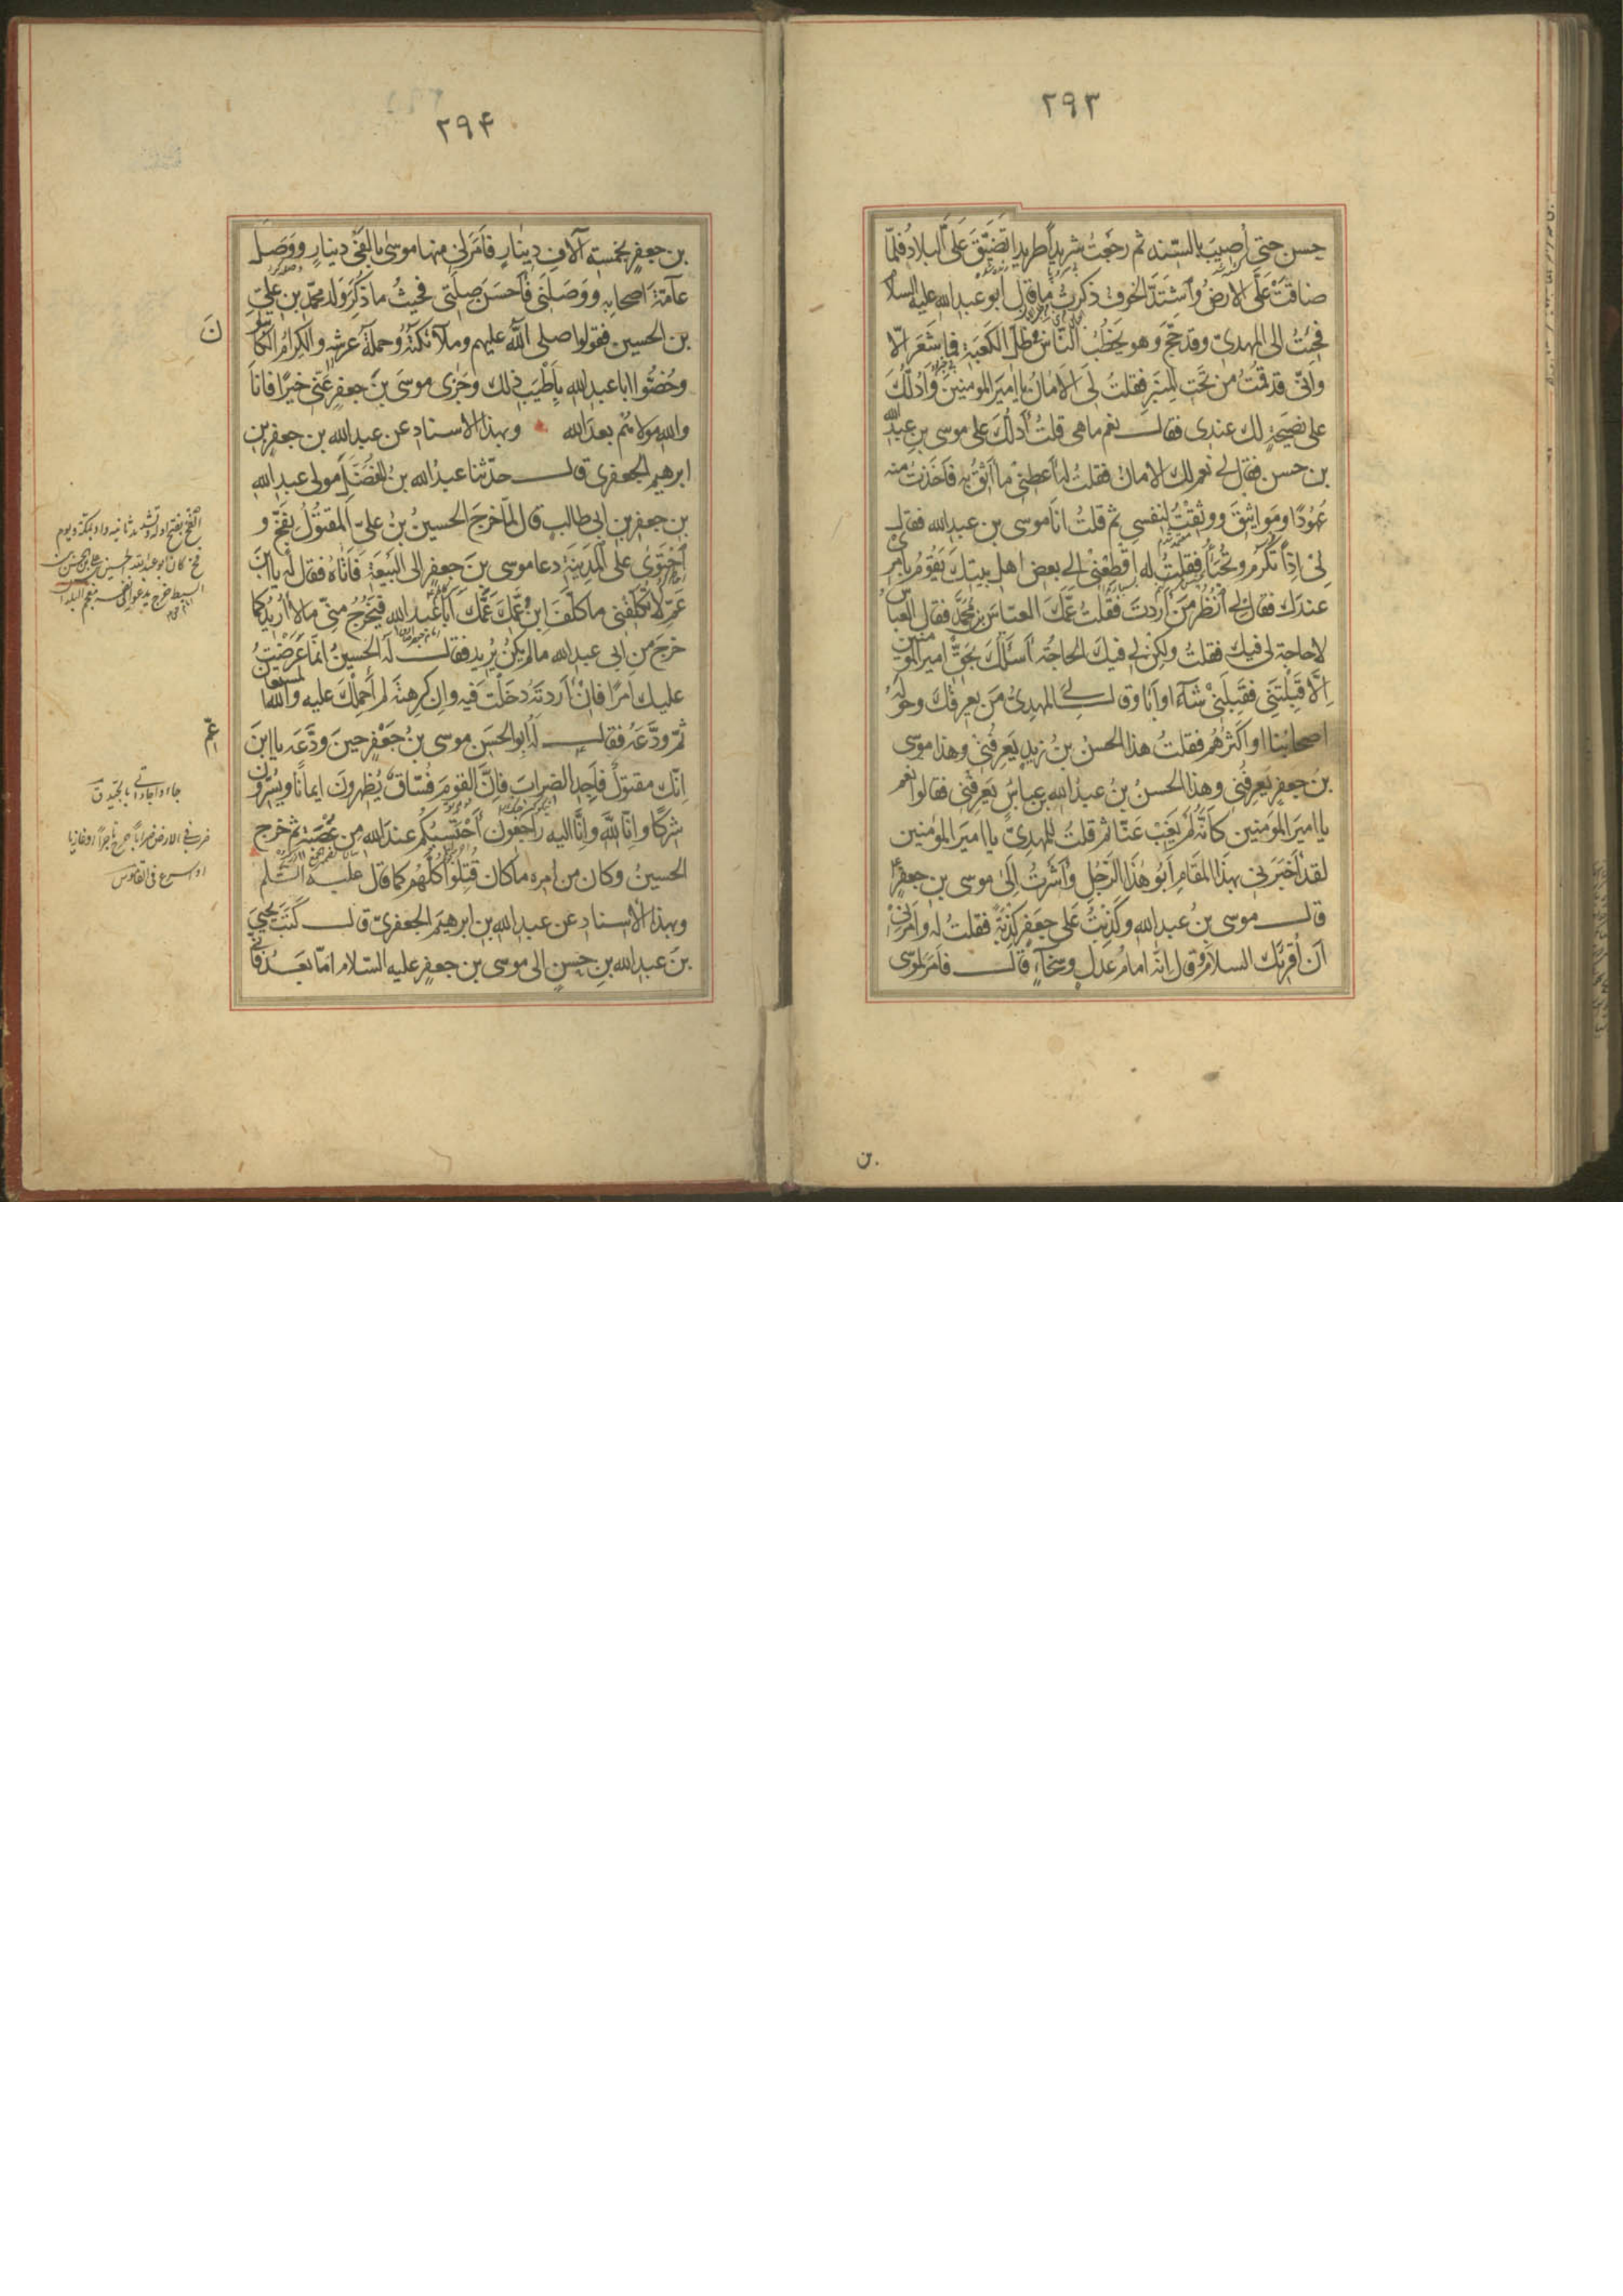 ٢٩٣
حسن حتى أصيب بالسند ثم رجعت شريدا طريدا تضيق على البلاد فلما
ضاقت على الارض واشتد الخوف ذكرت ما قال ابو عبد الله عليه السلام
فجئت الى المهدى وقد حج وهو يخطب الناس فى ظل الكعبة فما شعر الا
وانى قد قمت من تحت المنبر فقلت لى الامان يا امير المومنين وادلك
على نصيحة لك عندى فقال نعم ما هى قلت ادلك على موسى بن عبد الله
بن حسن فقال لى نعم لك الامان فقلت له اعطنى ما اثق به فاخذت منه
عهودا ومواثيق ووثقت لنفسى ثم قلت انا موسى بن عبد الله فقال
لى اذا تكرم وتحبا فقلت له اقطعنى الى بعض اهل بيتك يقوم بامرى
عندك فقال لى انظر من اردت فقلت عمك العباس بن محمد فقال العباس
لا حاجة لى فيك فقلت ولكن لى فيك الحاجة اسئلك بحق امير المومنين
الا قبلتنى فقبلنى شاء او ابا وقال لى المهدى من يعرفك وحوله
اصحابنا او اكثرهم فقلت هذا الحسن بن زيد يعرفنى وهذا موسى
بن جعفر يعرفنى وهذا الحسن بن عبد الله بن عباس يعرفنى فقالوا نعم
يا امير المومنين كانه لم يغب عنا ثم قلت للمهدى يا امير المومنين
لقد اخبرنى بهذا المقام ابو هذا الرجل واشرت الى موسى بن جعفر
قال موسى بن عبد الله وكذبت على جعفر كذبة فقلت له وامرنى
ان اقرئك السلام وقال انه امام عدل وسخاء قال فامر لموسى
بن
٢٩۴
بن جعفر بخمسة آلاف دينار فامر لى منها موسى بالفى دينار ووصل
عامة اصحابه ووصلنى فاحسن صلتى فحيث ما ذكر ولد محمد بن على
بن الحسين فقولوا صلى الله عليهم وملائكته وحملة عرشه والكرام الكاتبون
وخصوا ابا عبد الله باطيب ذلك وجزى موسى بن جعفر عنى خيرا فانا
والله مولاهم بعد الله وبهذا الاسناد عن عبد الله بن جعفر بن
ابرهيم الجعفرى قال حدثنا عبد الله بن المفضل مولى عبد الله
بن جعفر بن ابى طالب قال لما خرج الحسين بن على المقتول بفخ و
احتوى على المدينة دعا موسى بن جعفر الى البيعة فاتاه فقال له يا ابن
عم لا تكلفنى ما كلف ابن عمك عمك ابا عبد الله فيخرج منى ما لا اريد كما
خرج من ابى عبد الله ما لم يكن يريد فقال له الحسين انما عرضت
عليك امرا فان اردته دخلت فيه وان كرهته لم احملك عليه والله المستعان
ثم ودعه فقال له ابو الحسن موسى بن جعفر حين ودعه يا ابن
عم
انك مقتول فاجد الضراب فان القوم فساق يظهرون ايمانا ويسرون
شركا وانا لله وانا اليه راجعون احتسبكم عند الله من عصبة ثم خرج
الحسين وكان من امره ما كان قتلوا كلهم كما قال عليه السلم
وبهذا الاسناد عن عبد الله بن ابرهيم الجعفرى قال كتب يحيى
بن عبد الله بن حسن الى موسى بن جعفر عليه السلام اما بعد فانى
الفخ بفتح اوله وتشديد ثانيه واد بمكة ويوم
فخ كان ابو عبد الله الحسين بن على بن الحسن بن